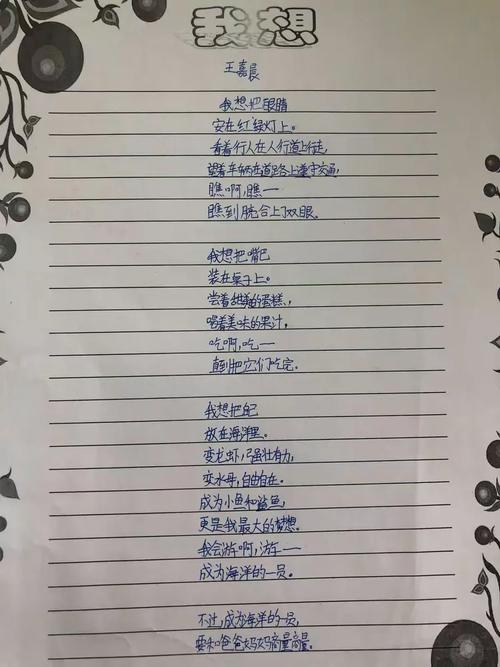 我想
王嘉辰
我想把眼睛
安在红绿灯上。
看着行人在人行道上行走,
望着车辆在道路上遵守交通,
瞧啊,瞧——
瞧到胱合上了双眼。
我想把嘴巴
装在桌子上。
尝着甜美的蛋糕,
喝着美味的果汁,
吃啊,吃——
直到把它们吃完。
我想把自己
放在海洋里。
变龙虾,强壮有力,
变水母,自由自在。
成为小鱼和鲨鱼,
更是我最大的梦想。
我会游车啊,游车——
成为海洋的一员。
不过,成为海洋的一员,
要和爸爸妈妈商量商量。